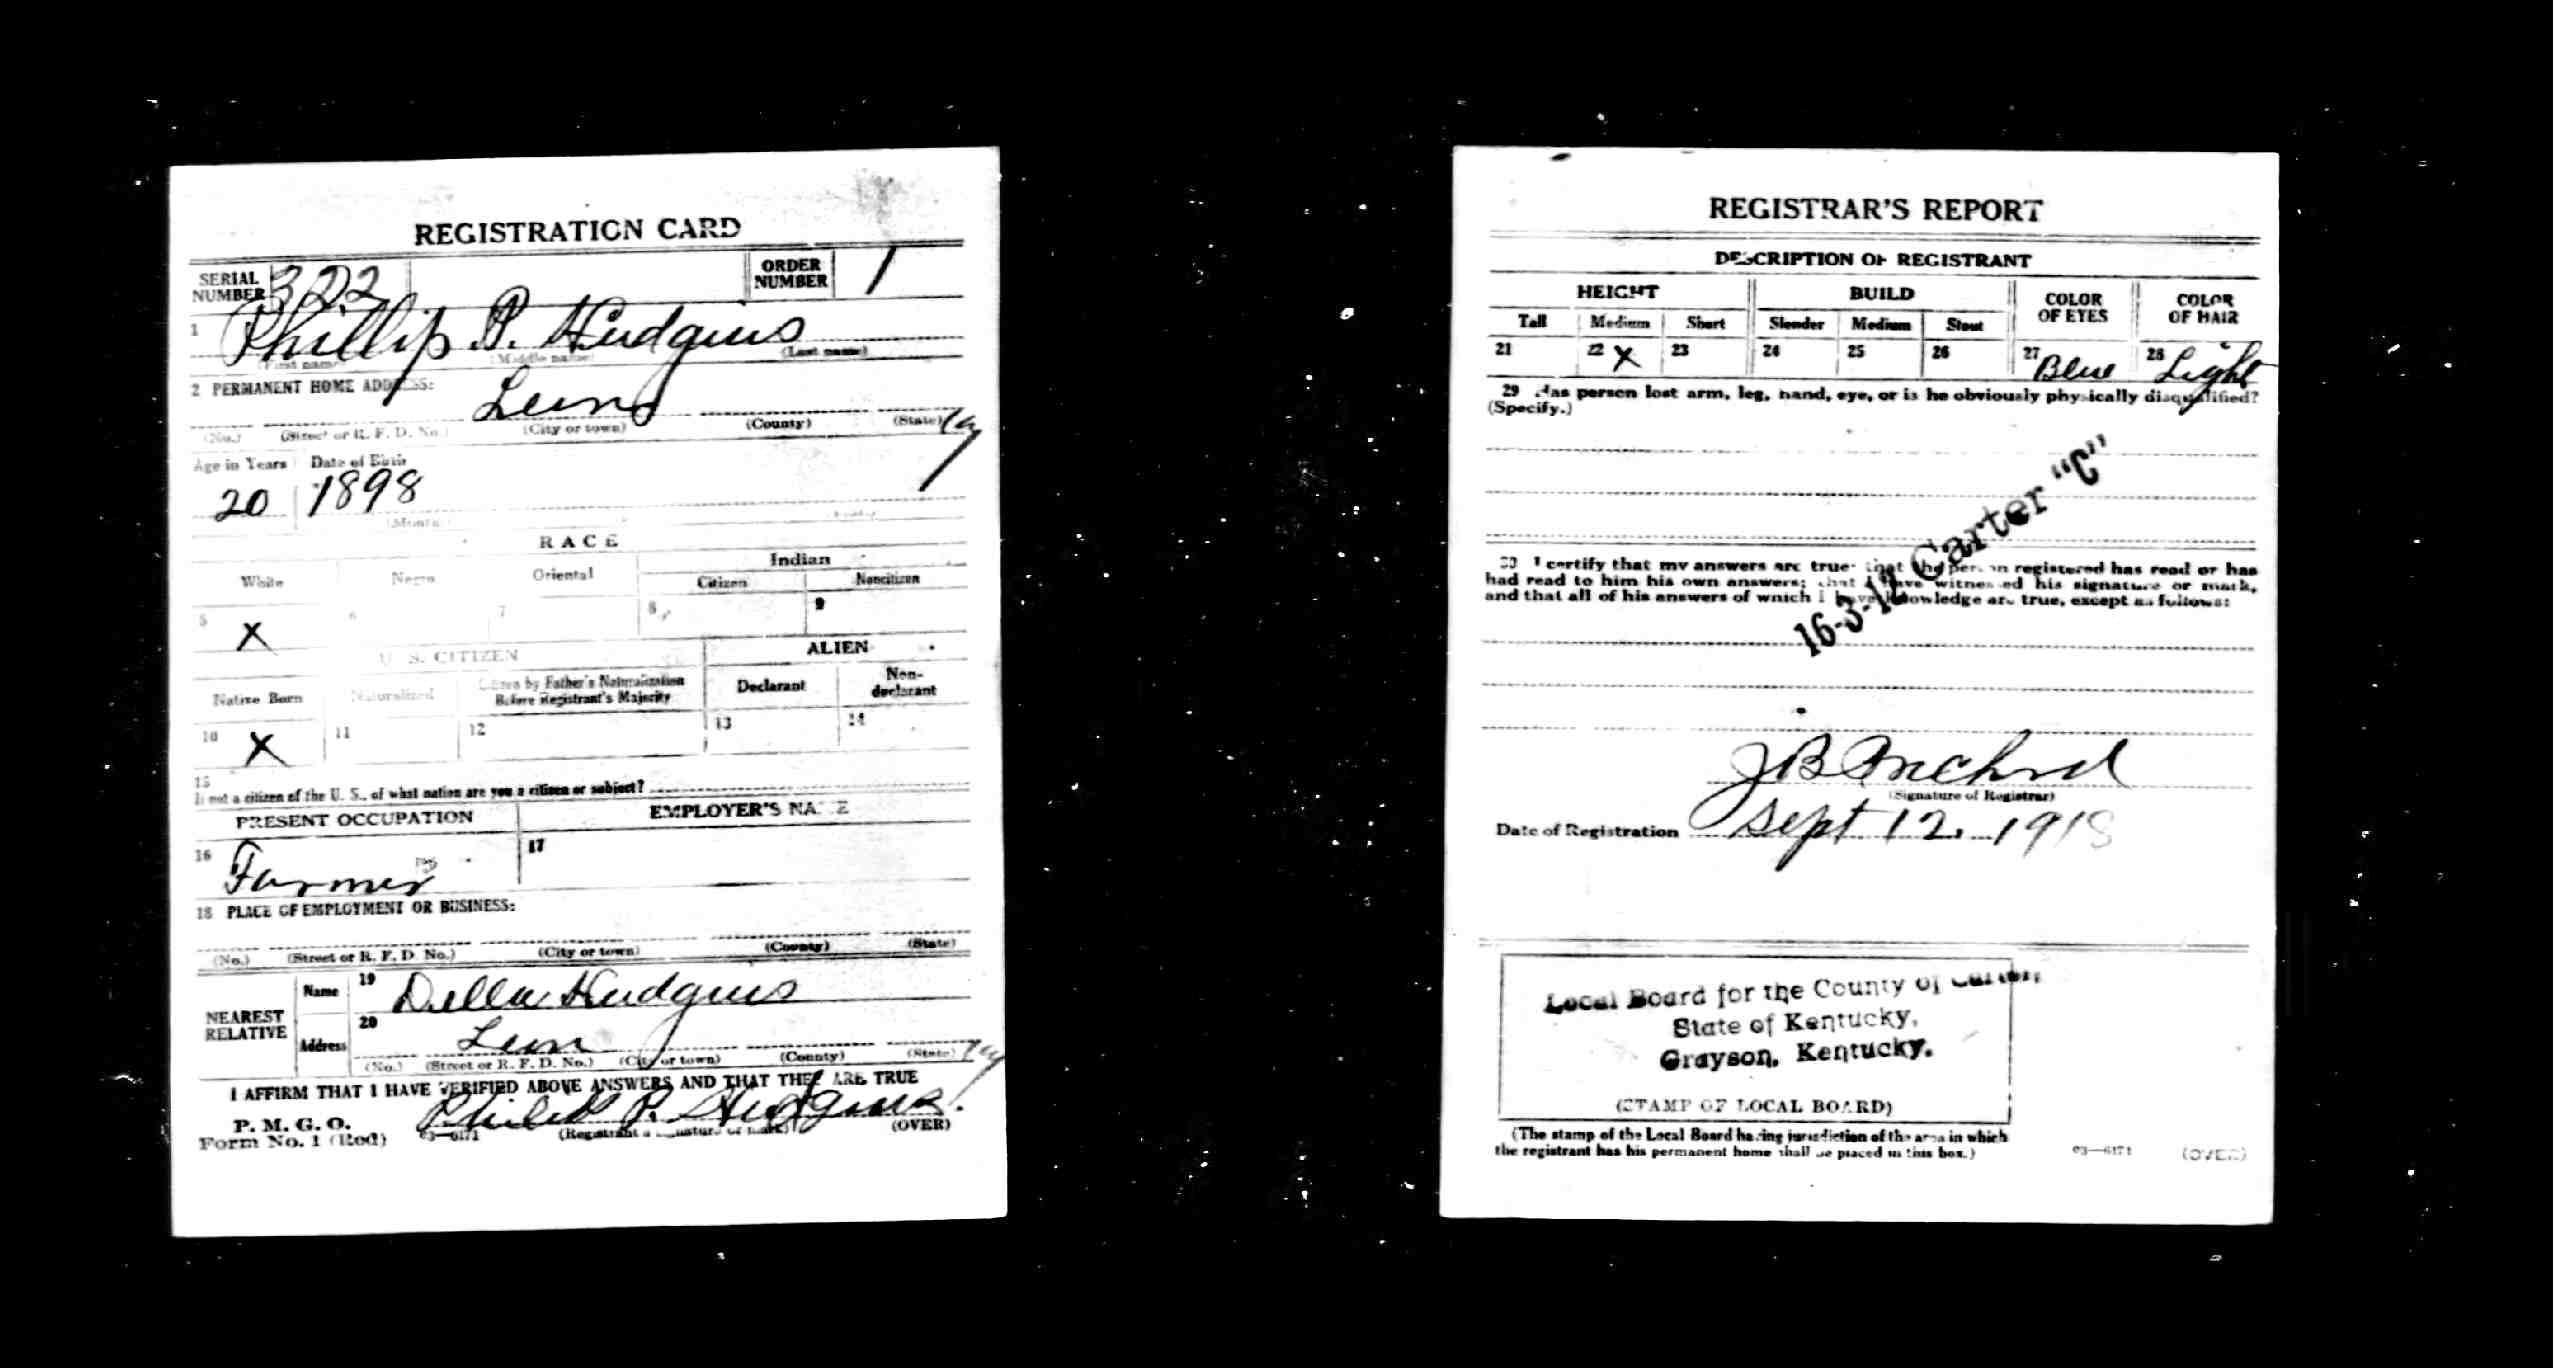 REGISTRATION CARD
SERIAL NUMBER 322 ORDER NUMBER 1
1 Phillip P. Hudgins
(First name) (Middle name) (Last name)
2 PERMANENT HOME ADDRESS:
Leon Ky
(No.) (Street or R. F. D. No.) (City or town) (County) (State)
Age in Years Date of Birth
20 1898
(Month)
RACE
White Negro Oriental Indian
Citizen Noncitizen
5 X 6 7 8 9
U. S. CITIZEN ALIEN
Native Born Naturalized Citizen by Father's Naturalization Before Registrant's Majority Declarant Non-declarant
10 X 11 12 13 14
15
If not a citizen of the U. S., of what nation are you a citizen or subject?
PRESENT OCCUPATION EMPLOYER'S NAME
16 Farmer 17
18 PLACE OF EMPLOYMENT OR BUSINESS:
(No.) (Street or R. F. D. No.) (City or town) (County) (State)
NEAREST RELATIVE Name 19 Della Hudgins
Address 20 Leon Ky
(No.) (Street or R. F. D. No.) (City or town) (County) (State)
I AFFIRM THAT I HAVE VERIFIED ABOVE ANSWERS AND THAT THEY ARE TRUE
P. M. G. O.
Form No. 1 (Red) 03—6171 P. Hudgins
(Registrant's signature or mark) (OVER)
REGISTRAR'S REPORT
DESCRIPTION OF REGISTRANT
HEIGHT BUILD COLOR OF EYES COLOR OF HAIR
Tall Medium Short Slender Medium Stout
21 22 X 23 24 25 26 27 Blue 28 Light
29 Has person lost arm, leg, hand, eye, or is he obviously physically disqualified?
(Specify.)
16-3-12 Carter "C"
30 I certify that my answers are true; that the person registered has read or has
had read to him his own answers; that I have witnessed his signature or mark,
and that all of his answers of which I have knowledge are true, except as follows:
J B
(Signature of Registrar)
Date of Registration Sept 12, 1918
Local Board for the County of Carter,
State of Kentucky,
Grayson, Kentucky.
(STAMP OF LOCAL BOARD)
(The stamp of the Local Board having jurisdiction of the area in which
the registrant has his permanent home shall be placed in this box.)
03—6171 (OVER)